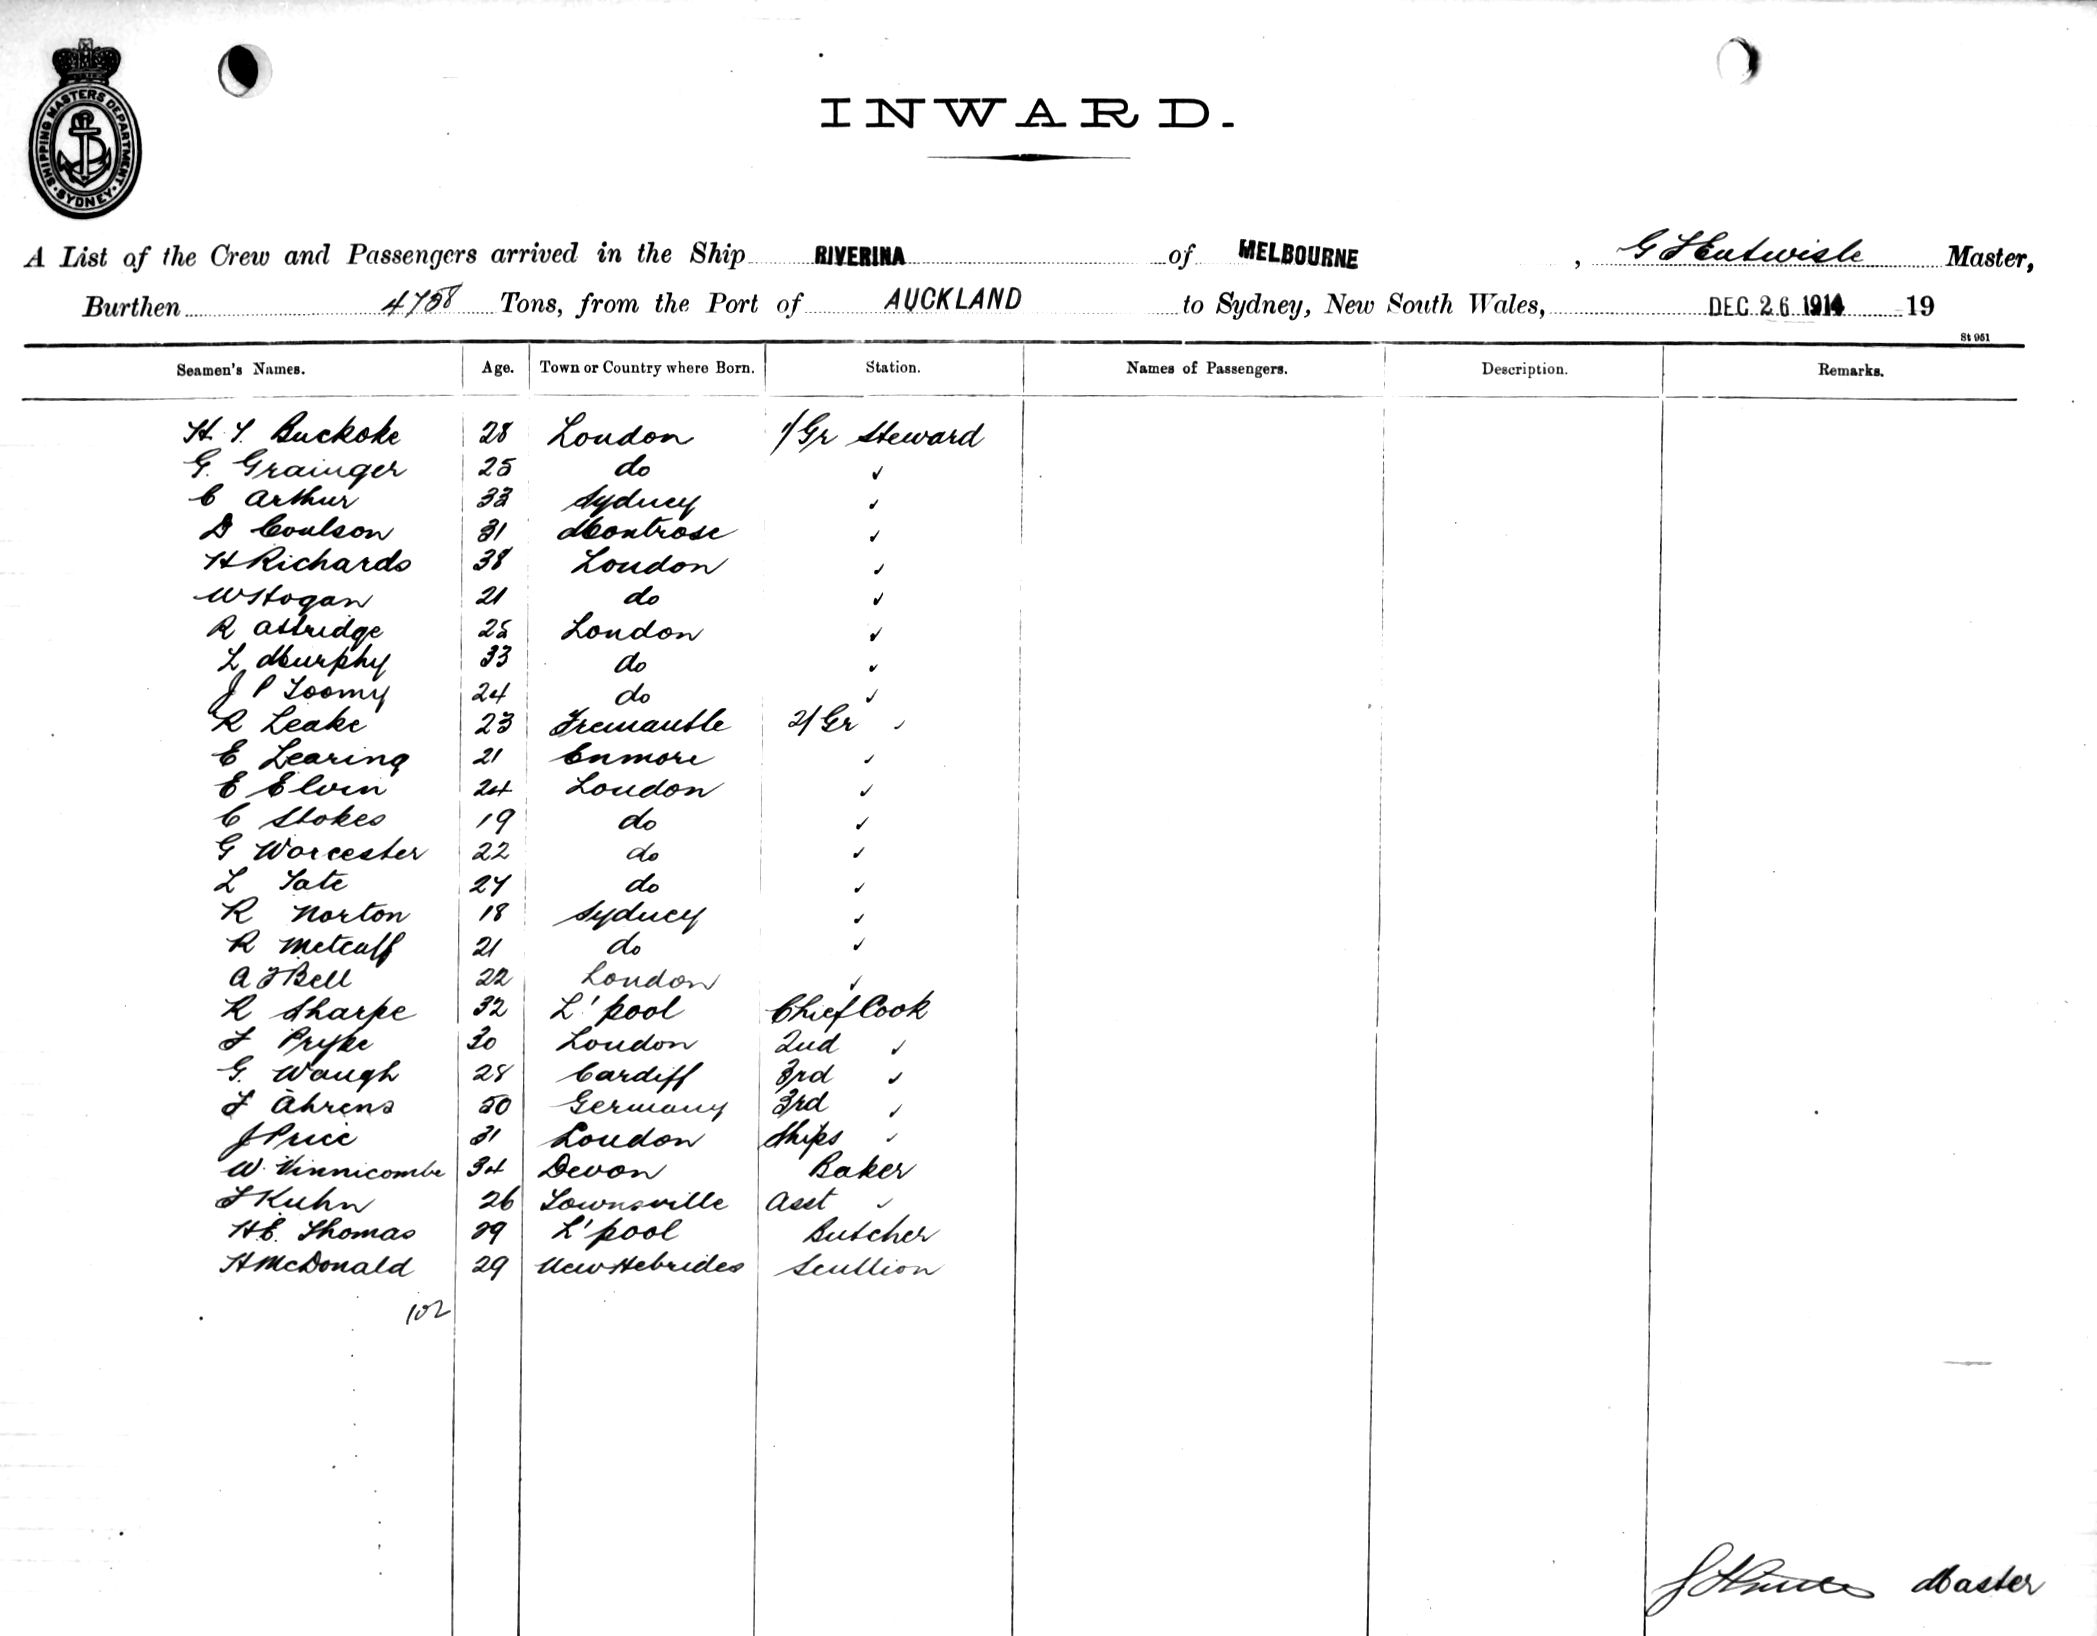 SHIPPING MASTERS DEPARTMENT. SYDNEY
INWARD.
A List of the Crew and Passengers arrived in the Ship RIVERINA of MELBOURNE, G F Entwisle Master,
Burthen 4758 Tons, from the Port of AUCKLAND to Sydney, New South Wales, DEC 26 1914 19
St 951
Seamen's Names. Age. Town or Country where Born. Station. Names of Passengers. Description. Remarks.
H. T. Buckoke 28 London 1/Gr Steward
G. Grainger 25 do ✓
C Arthur 33 Sydney ✓
D Coulson 31 Montrose ✓
H Richards 38 London ✓
W Hogan 21 do ✓
R Attridge 25 London ✓
L Murphy 33 do ✓
J P Toomy 24 do ✓
R Leake 23 Fremantle 2/Gr ✓
E Learing 21 Enmore ✓
E Elvin 24 London ✓
C Stokes 19 do ✓
G Worcester 22 do ✓
L Tate 27 do ✓
R Norton 18 Sydney ✓
R Metcalf 21 do ✓
A F Bell 22 London ✓
R Sharpe 32 L'pool Chief Cook
F Pryke 30 London 2nd ✓
G. Waugh 28 Cardiff 3rd ✓
F Ahrens 50 Germany 3rd ✓
J Price 31 London Ships ✓
W. Vinnicombe 34 Devon Baker
F Kuhn 26 Townsville Asst ✓
H.E. Thomas 29 L'pool Butcher
H McDonald 29 New Hebrides Scullion
102
Master